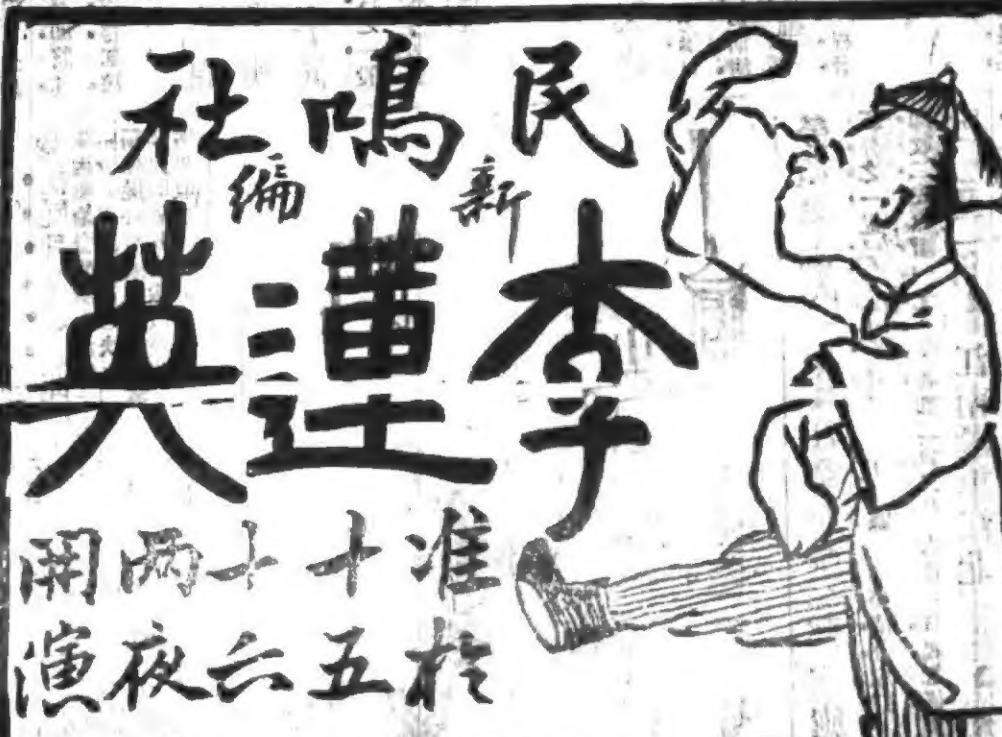 民鳴社
新編
李蓮英
准於
十五
十六
兩夜
開演